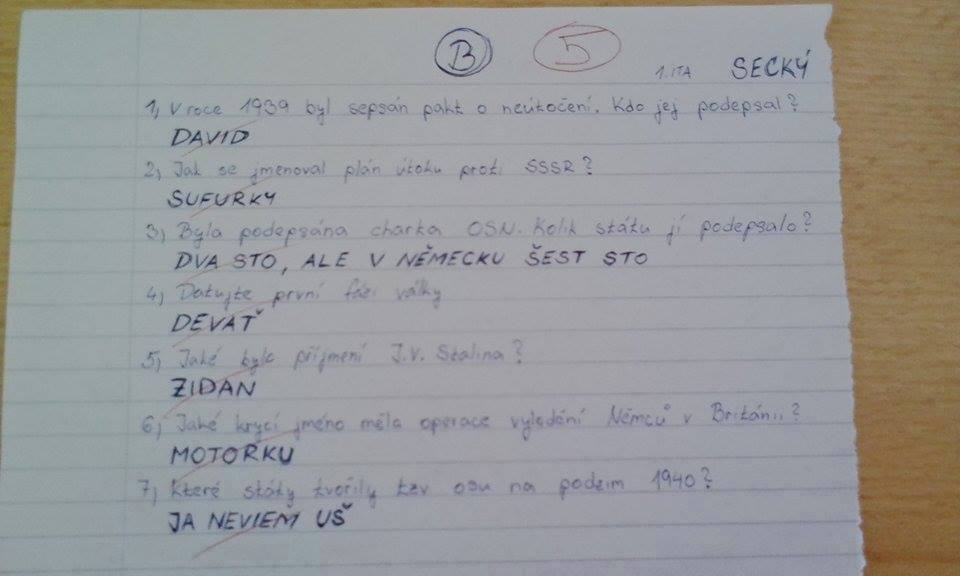 B 5
1.ITA SECKÝ
1, V roce 1939 byl sepsán pakt o neútočení. Kdo jej podepsal?
DAVID
2, Jak se jmenoval plán útoku proti SSSR?
SUFURKY
3, Byla podepsána charka OSN. Kolik státu jí podepsalo?
DVA STO, ALE V NĚMECKU ŠEST STO
4, Datujte první fázi války
DEVAŤ
5, Jaké bylo příjmení J.V. Stalina?
ZIDAN
6, Jaké krycí jméno měla operace vylodění Němců v Británii?
MOTORKU
7, Které státy tvořily tzv osu na podzim 1940?
JA NEVIEM UŠ